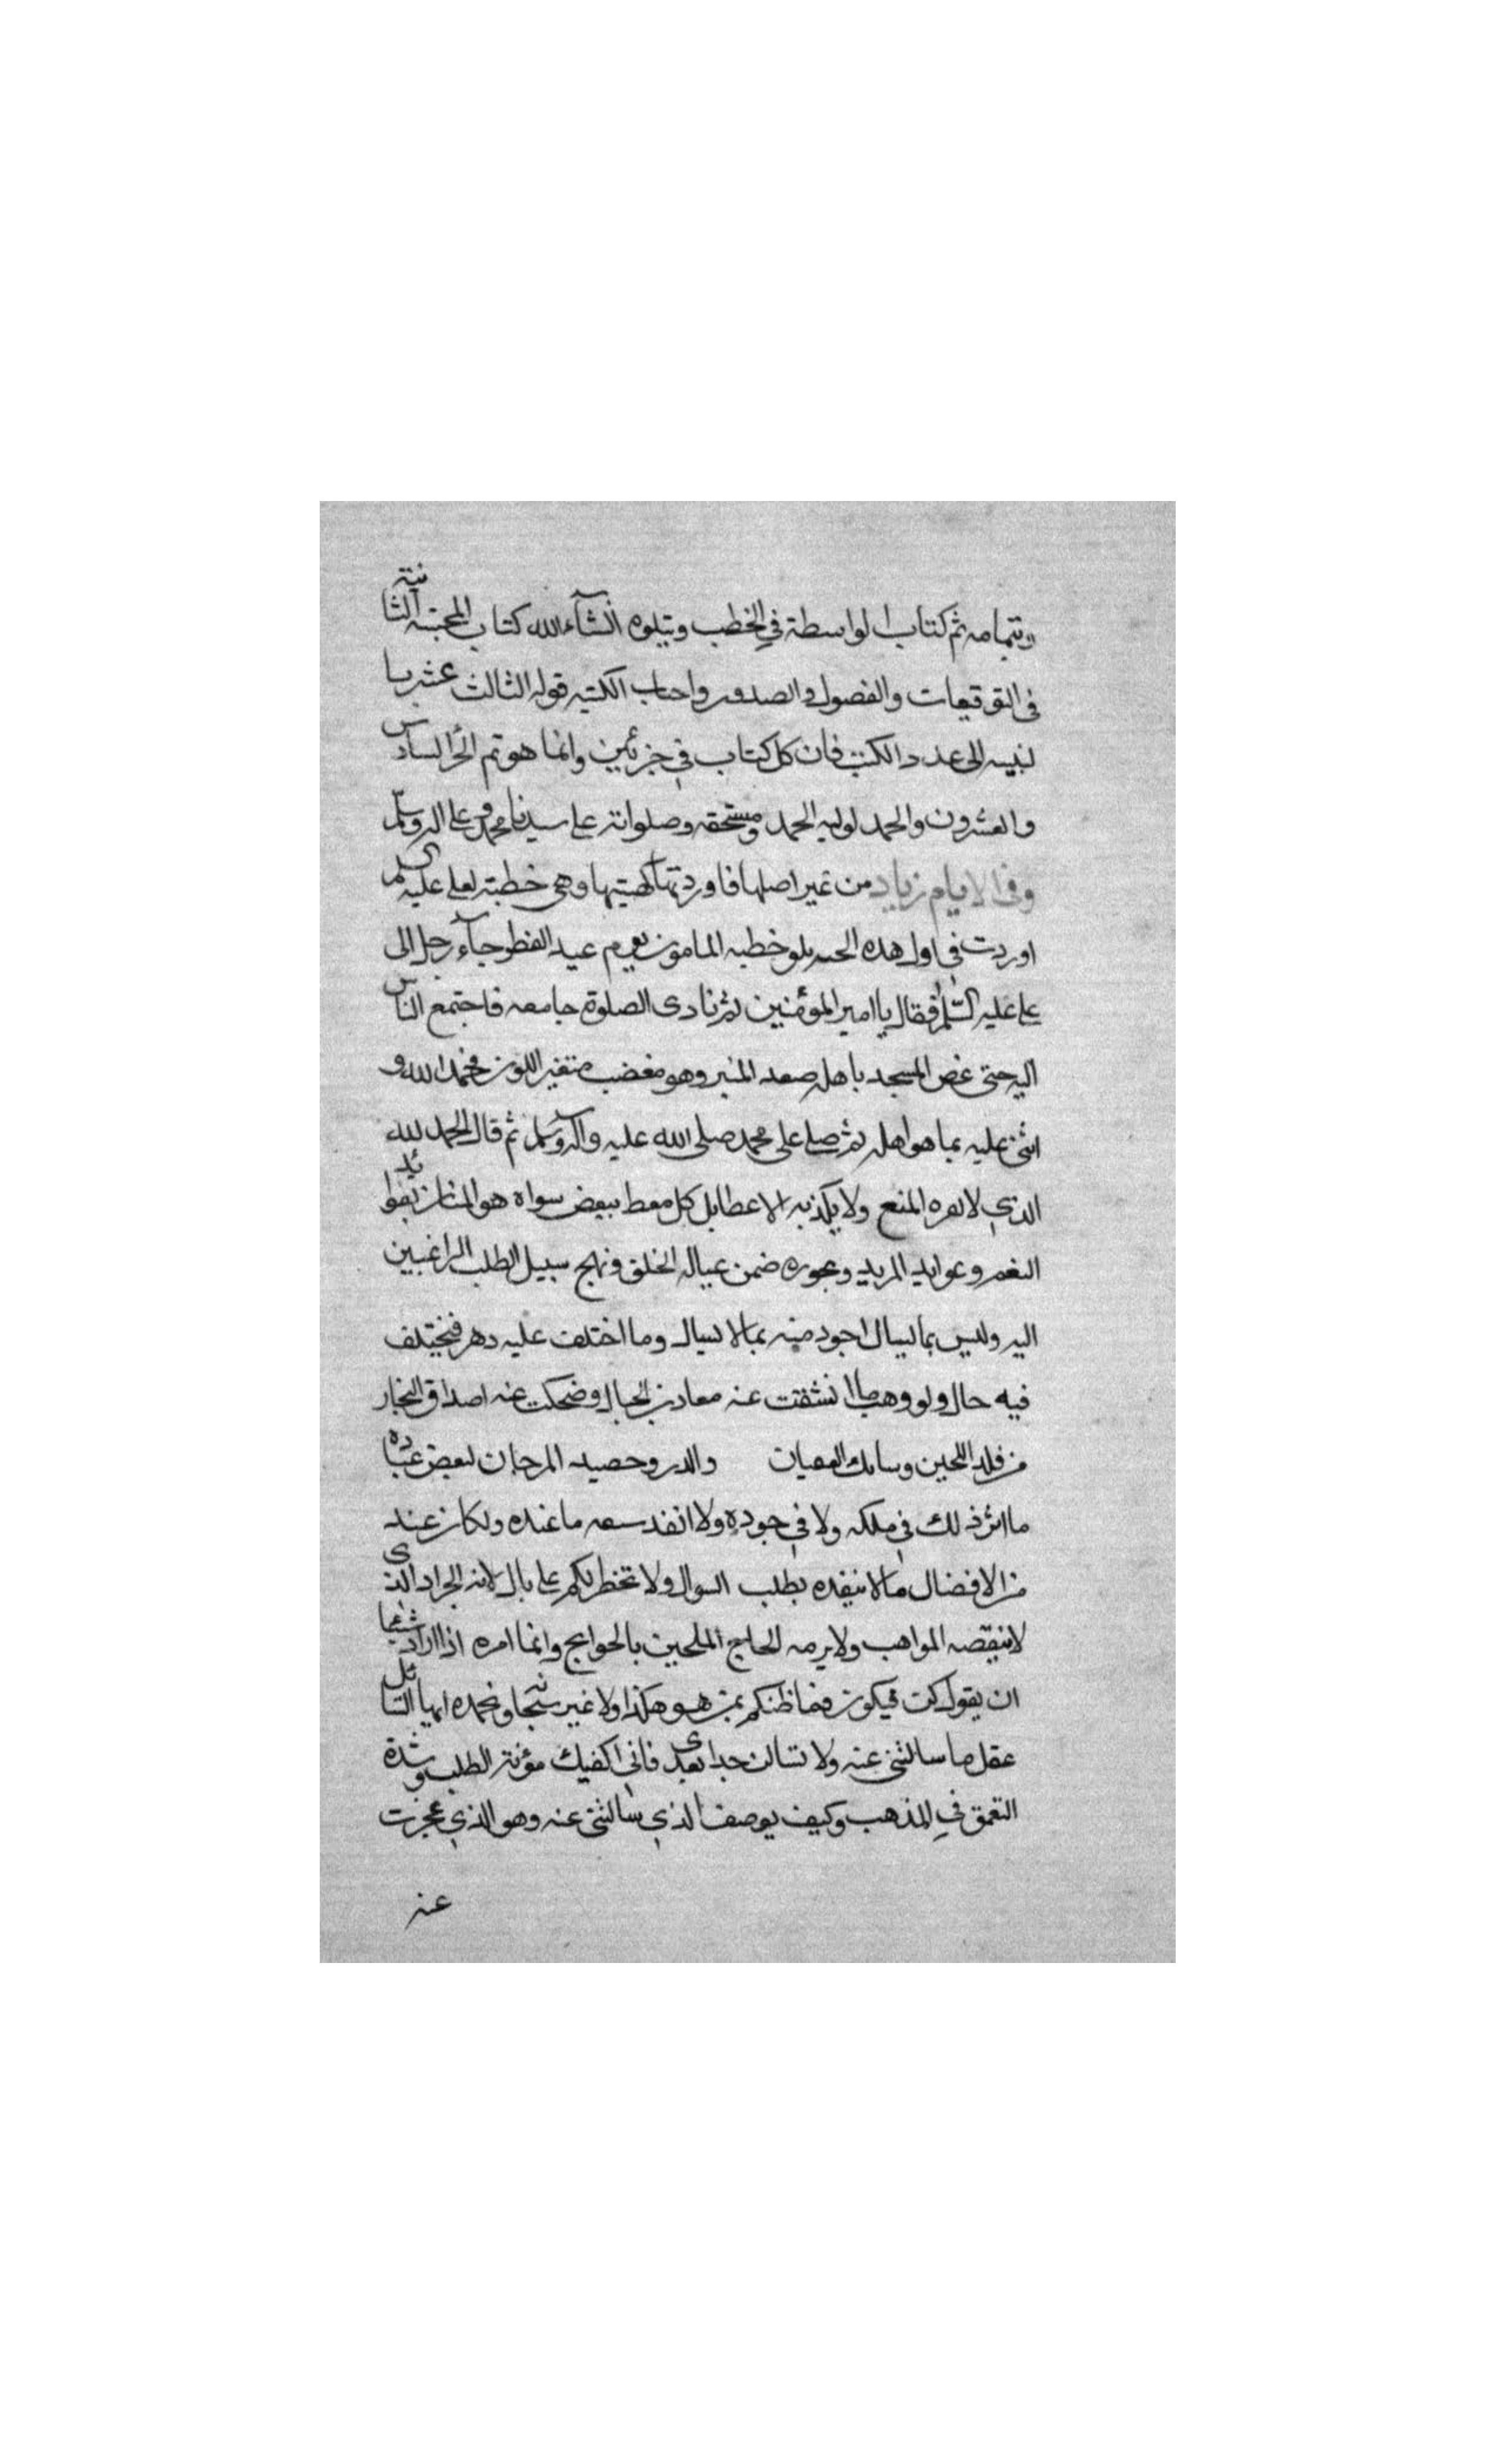 وبتمامه ثم كتاب الواسطة في الخطب ويتلوه انشآءالله كتاب المجنبة الثانية
في التوقيعات والفصول والصدور واحاب الكتبه قوله الثالث عشر با
لنبيسه الى عدد الكتب فان كل كتاب في جزئين وانما هو تم الجزالسادس
والعشرون والحمد لوليه الحمد ومستحقه وصلواته على سيدنا محمد وعلى اله وسلم
وفى الايام زياد من غير اصلها فاوردتها كهيتها وهى خطبته لعلى عليه السلم
اوردت في اول هذه الحسـ يلو خطبه المامون يوم عيد الفطر جآء رجل الى
على عليه السلم فقال يا امير المؤمنين ثم نادى الصلوة جامعه فاجتمع الناس
اليه حتى غص المسجد باهله صعد المنبر وهو مغضب متغير اللون فحمد الله و
اثنى عليه بما هو اهله ثم صلى على محمد صلى الله عليه وآله وسلم ثم قال الحمد لله
الذي لا يفره المنع ولا يكذبه الاعطا بل كل معط ببعض سواه هو المنان بفوائد
النعم وعوايد المزيد وبجوده ضمن عياله الخلق ونهج سبيل الطلب الراغبين
اليه وليس بما يسال اجود منه بما لا يسال وما اختلف عليه دهر فيختلف
فيه حال ولو وهب ما انشقت عنه معادن الجبال وضحكت عنه اصداق البحار
من فلذ اللجين وسابك العقيان والدر وحصيد المرجان لبعض عباده
ما اثر ذلك في ملكه ولا في جوده ولا انفد سعه ما عنده ولكان عند
من الافضال ما لا ينفده بطلب السوال ولا تخطر لكم على بال لانه الجواد الذى
لا ينقصه المواهب ولا يرمه الحاح الملحين بالحوايج وانما امره اذا اراد شيئا
ان يقول كن فيكون فما ظنكم بمن هو هكذا ولا غير سبحانه وبحمده ايها السائل
عقل ما سالتني عنه ولا تسالن احدا بعدى فانى اكفيك مؤنة الطلب وشدة
التعمق في المذهب وكيف يوصف الذي سالتني عنه وهو الذي عجزت
عنه